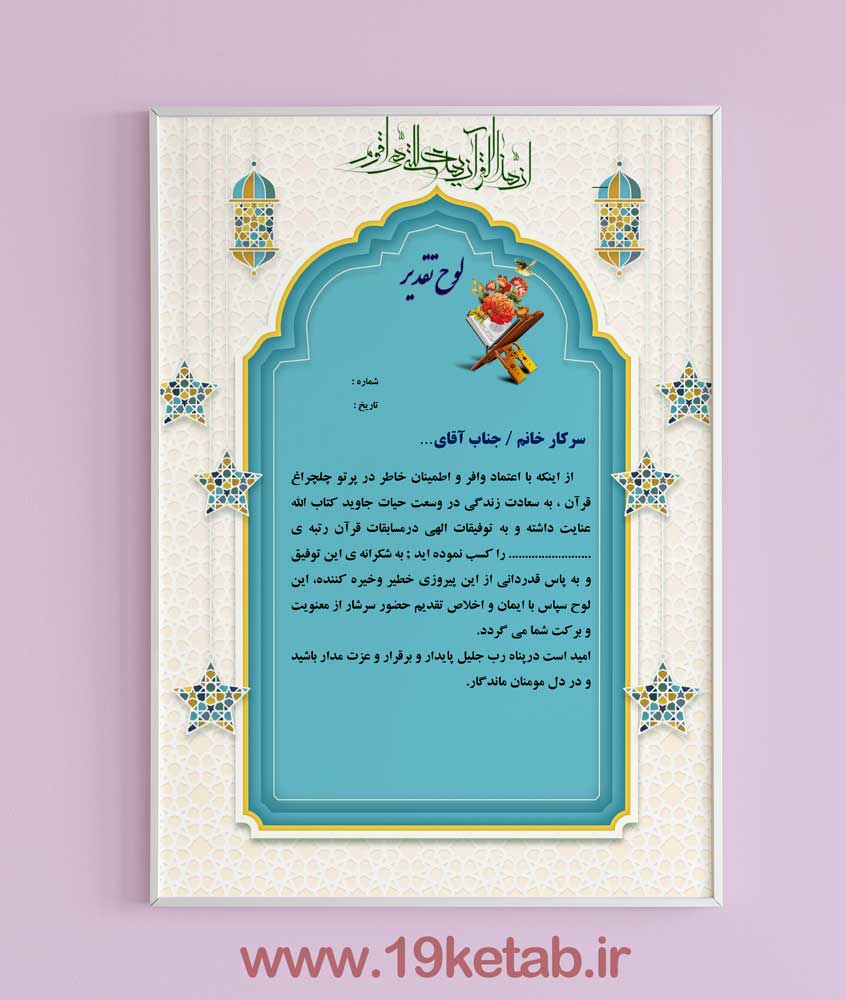 ان هذا القرآن یهدی للتی هی اقوم
لوح تقدیر
شماره :
تاریخ :
سرکار خانم / جناب آقای...
از اینکه با اعتماد وافر و اطمینان خاطر در پرتو چلچراغ
قرآن ، به سعادت زندگی در وسعت حیات جاوید کتاب الله
عنایت داشته و به توفیقات الهی درمسابقات قرآن رتبه ی
......................... را کسب نموده اید ; به شکرانه ی این توفیق
و به پاس قدردانی از این پیروزی خطیر وخیره کننده، این
لوح سپاس با ایمان و اخلاص تقدیم حضور سرشار از معنویت
و برکت شما می گردد.
امید است درپناه رب جلیل پایدار و برقرار و عزت مدار باشید
و در دل مومنان ماندگار.
www.19ketab.ir